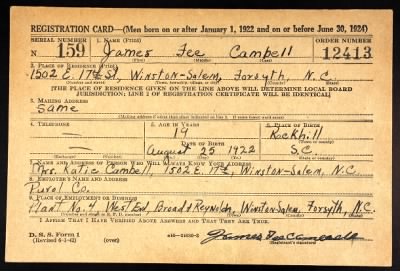 REGISTRATION CARD—(Men born on or after January 1, 1922 and on or before June 30, 1924)
SERIAL NUMBER 1. NAME (Print) ORDER NUMBER
N 159 James Lee Cambell 12413
(First) (Middle) (Last)
2. PLACE OF RESIDENCE (Print)
1502 E. 17th St, Winston-Salem, Forsyth, N.C.
[THE PLACE OF RESIDENCE GIVEN ON THE LINE ABOVE WILL DETERMINE LOCAL BOARD
JURISDICTION; LINE 2 OF REGISTRATION CERTIFICATE WILL BE IDENTICAL]
3. MAILING ADDRESS
Same
4. TELEPHONE 5. AGE IN YEARS 6. PLACE OF BIRTH
— 19 Rockhill
DATE OF BIRTH
— August 25 1922 S.C.
(Exchange) (Number) (Mo.) (Day) (Yr.) (State or country)
7. NAME AND ADDRESS OF PERSON WHO WILL ALWAYS KNOW YOUR ADDRESS
Mrs. Katie Cambell, 1502 E. 17th, Winston-Salem, N.C.
8. EMPLOYER'S NAME AND ADDRESS
Purol Co.
9. PLACE OF EMPLOYMENT OR BUSINESS
Plant No. 4, West End, Broad & Reynolds, Winston-Salem, Forsyth, N.C.
I AFFIRM THAT I HAVE VERIFIED ABOVE ANSWERS AND THAT THEY ARE TRUE.
D. S. S. Form 1
(Revised 6-1-42) (over) James Lee Cambell
(Registrant's signature)